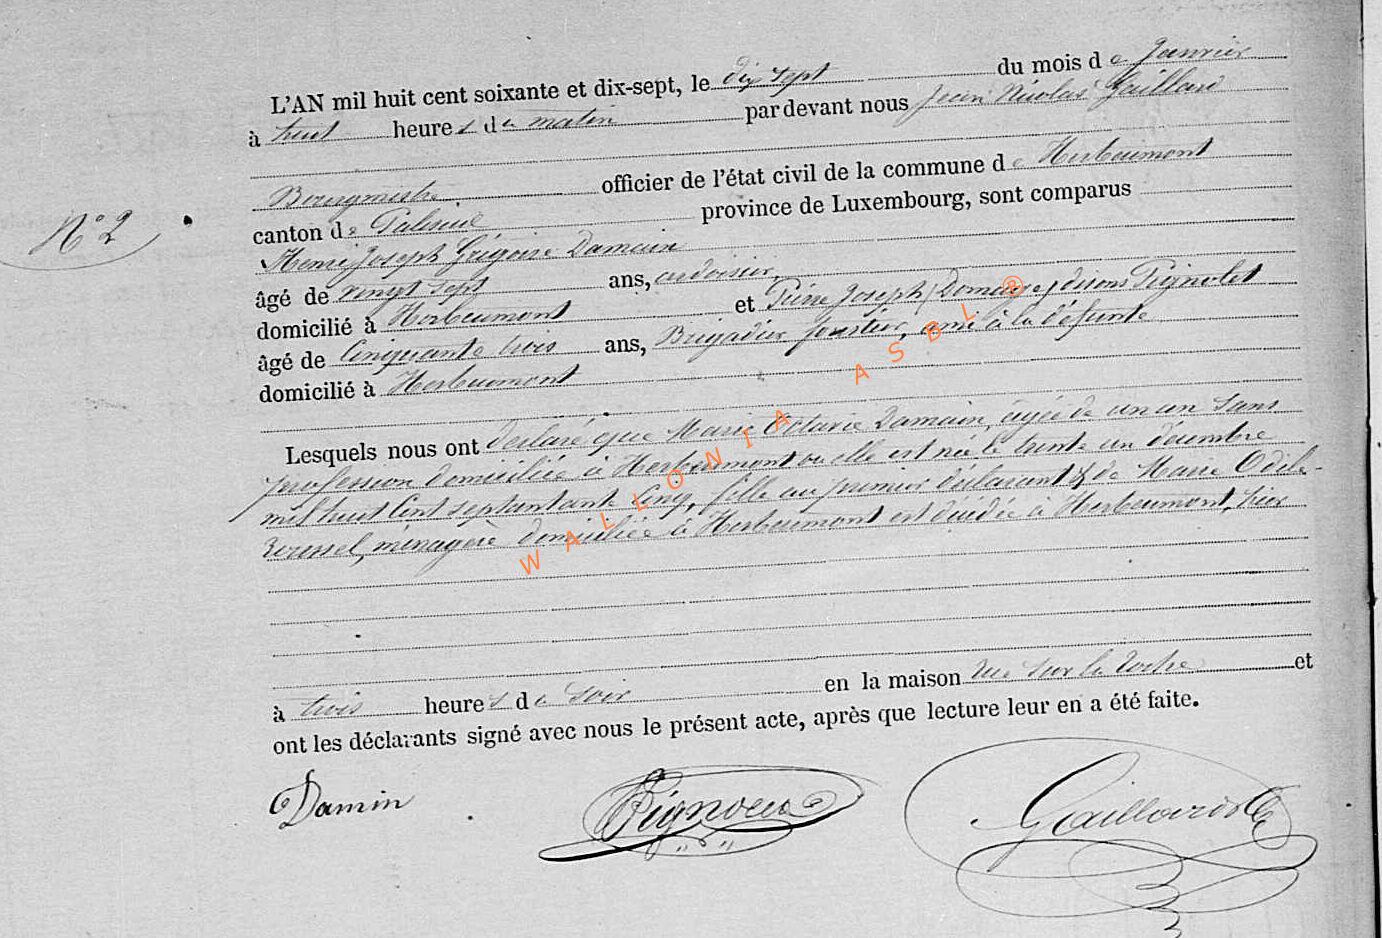 L'AN mil huit cent soixante et dix-sept, le dix sept du mois de Janvier
à huit heures du matin par devant nous Jean Nicolas Gaillard
Bourgmestre officier de l'état civil de la commune de Herbeumont
N° 2
canton de Paliseul province de Luxembourg, sont comparus
Henri Joseph Grégoire Damain
âgé de vingt sept ans, ardoisier,
domicilié à Herbeumont et Pierre Joseph (Domaire) disons Pignolet
âgé de Cinquante trois ans, Brigadier forestier, ami à la défunte
domicilié à Herbeumont
Lesquels nous ont déclaré que Marie Octavie Damain, âgée de un an sans
profession domiciliée à Herbeumont où elle est née le trente un décembre
mil huit Cent septantante Cinq, fille au premier déclarant & de Marie Odile
ménagère domiciliée à Herbeumont est décédée à Herbeumont, hier
à trois heures du soir en la maison rue sur la Roche et
ont les déclarants signé avec nous le présent acte, après que lecture leur en a été faite.
Damin Gaillard
WALLONIA ASBL ®